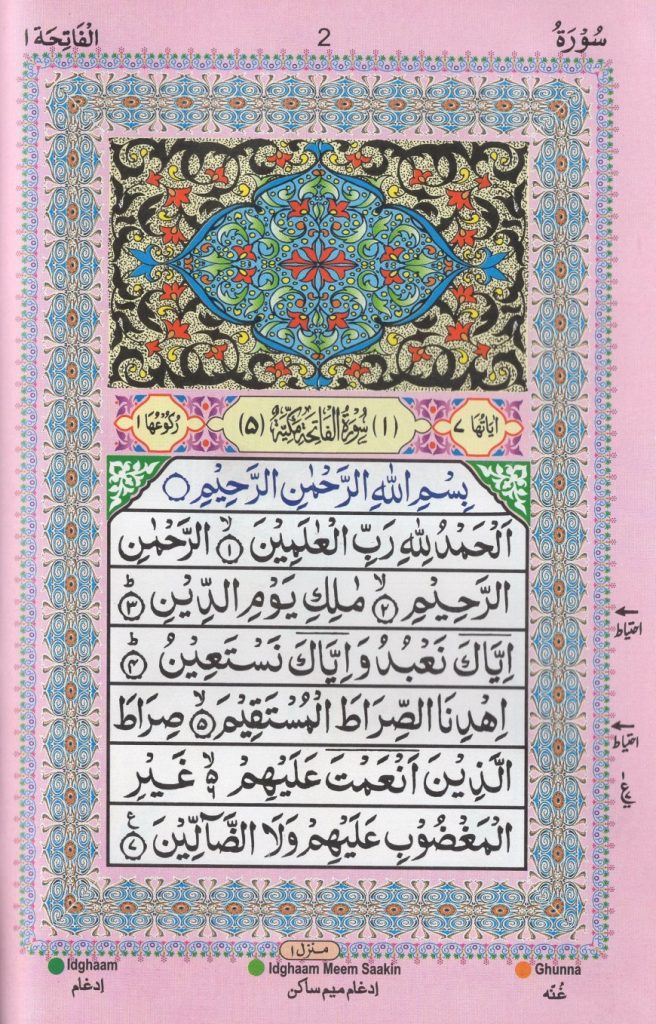 سُوْرَةُ 2 الْفَاتِحَة ١
اٰيَاتُهَا ٧ (١) سُوْرَةُ الْفَاتِحَةِ مَكِّيَّةٌ (٥) رُكُوْعُهَا ١
بِسْمِ اللّٰهِ الرَّحْمٰنِ الرَّحِيْمِ ○
اَلْحَمْدُ لِلّٰهِ رَبِّ الْعٰلَمِيْنَ ۙ‏﴿١﴾ الرَّحْمٰنِ
الرَّحِيْمِ ۙ‏﴿٢﴾ مٰلِكِ يَوْمِ الدِّيْنِ ؕ‏﴿٣﴾
احتیاط
اِيَّاكَ نَعْبُدُ وَاِيَّاكَ نَسْتَعِيْنُ ؕ‏﴿٤﴾
اِهْدِنَا الصِّرَاطَ الْمُسْتَقِيْمَ ۙ‏﴿٥﴾ صِرَاطَ
احتیاط
الَّذِيْنَ اَنْعَمْتَ عَلَيْهِمْ ۙ۬‏﴿٦﴾ غَيْرِ
الْمَغْضُوْبِ عَلَيْهِمْ وَلَا الضَّآلِّيْنَ ‏﴿٧﴾ ع
منزل ١
Idghaam Idghaam Meem Saakin Ghunna
اِدغام اِدغام میم ساکن غُنّه